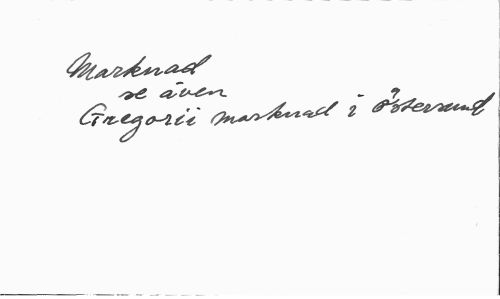 Marknad
se även
Gregorii marknad i Östersund